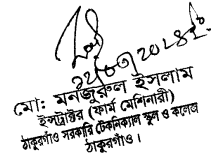 ১৮/০৭/২০২৪ইং
মো: মনজুরুল ইসলাম
ইন্সট্রাক্টর (ফার্ম মেশিনারী)
ঠাকুরগাঁও সরকারি টেকনিক্যাল স্কুল ও কলেজ
ঠাকুরগাঁও।